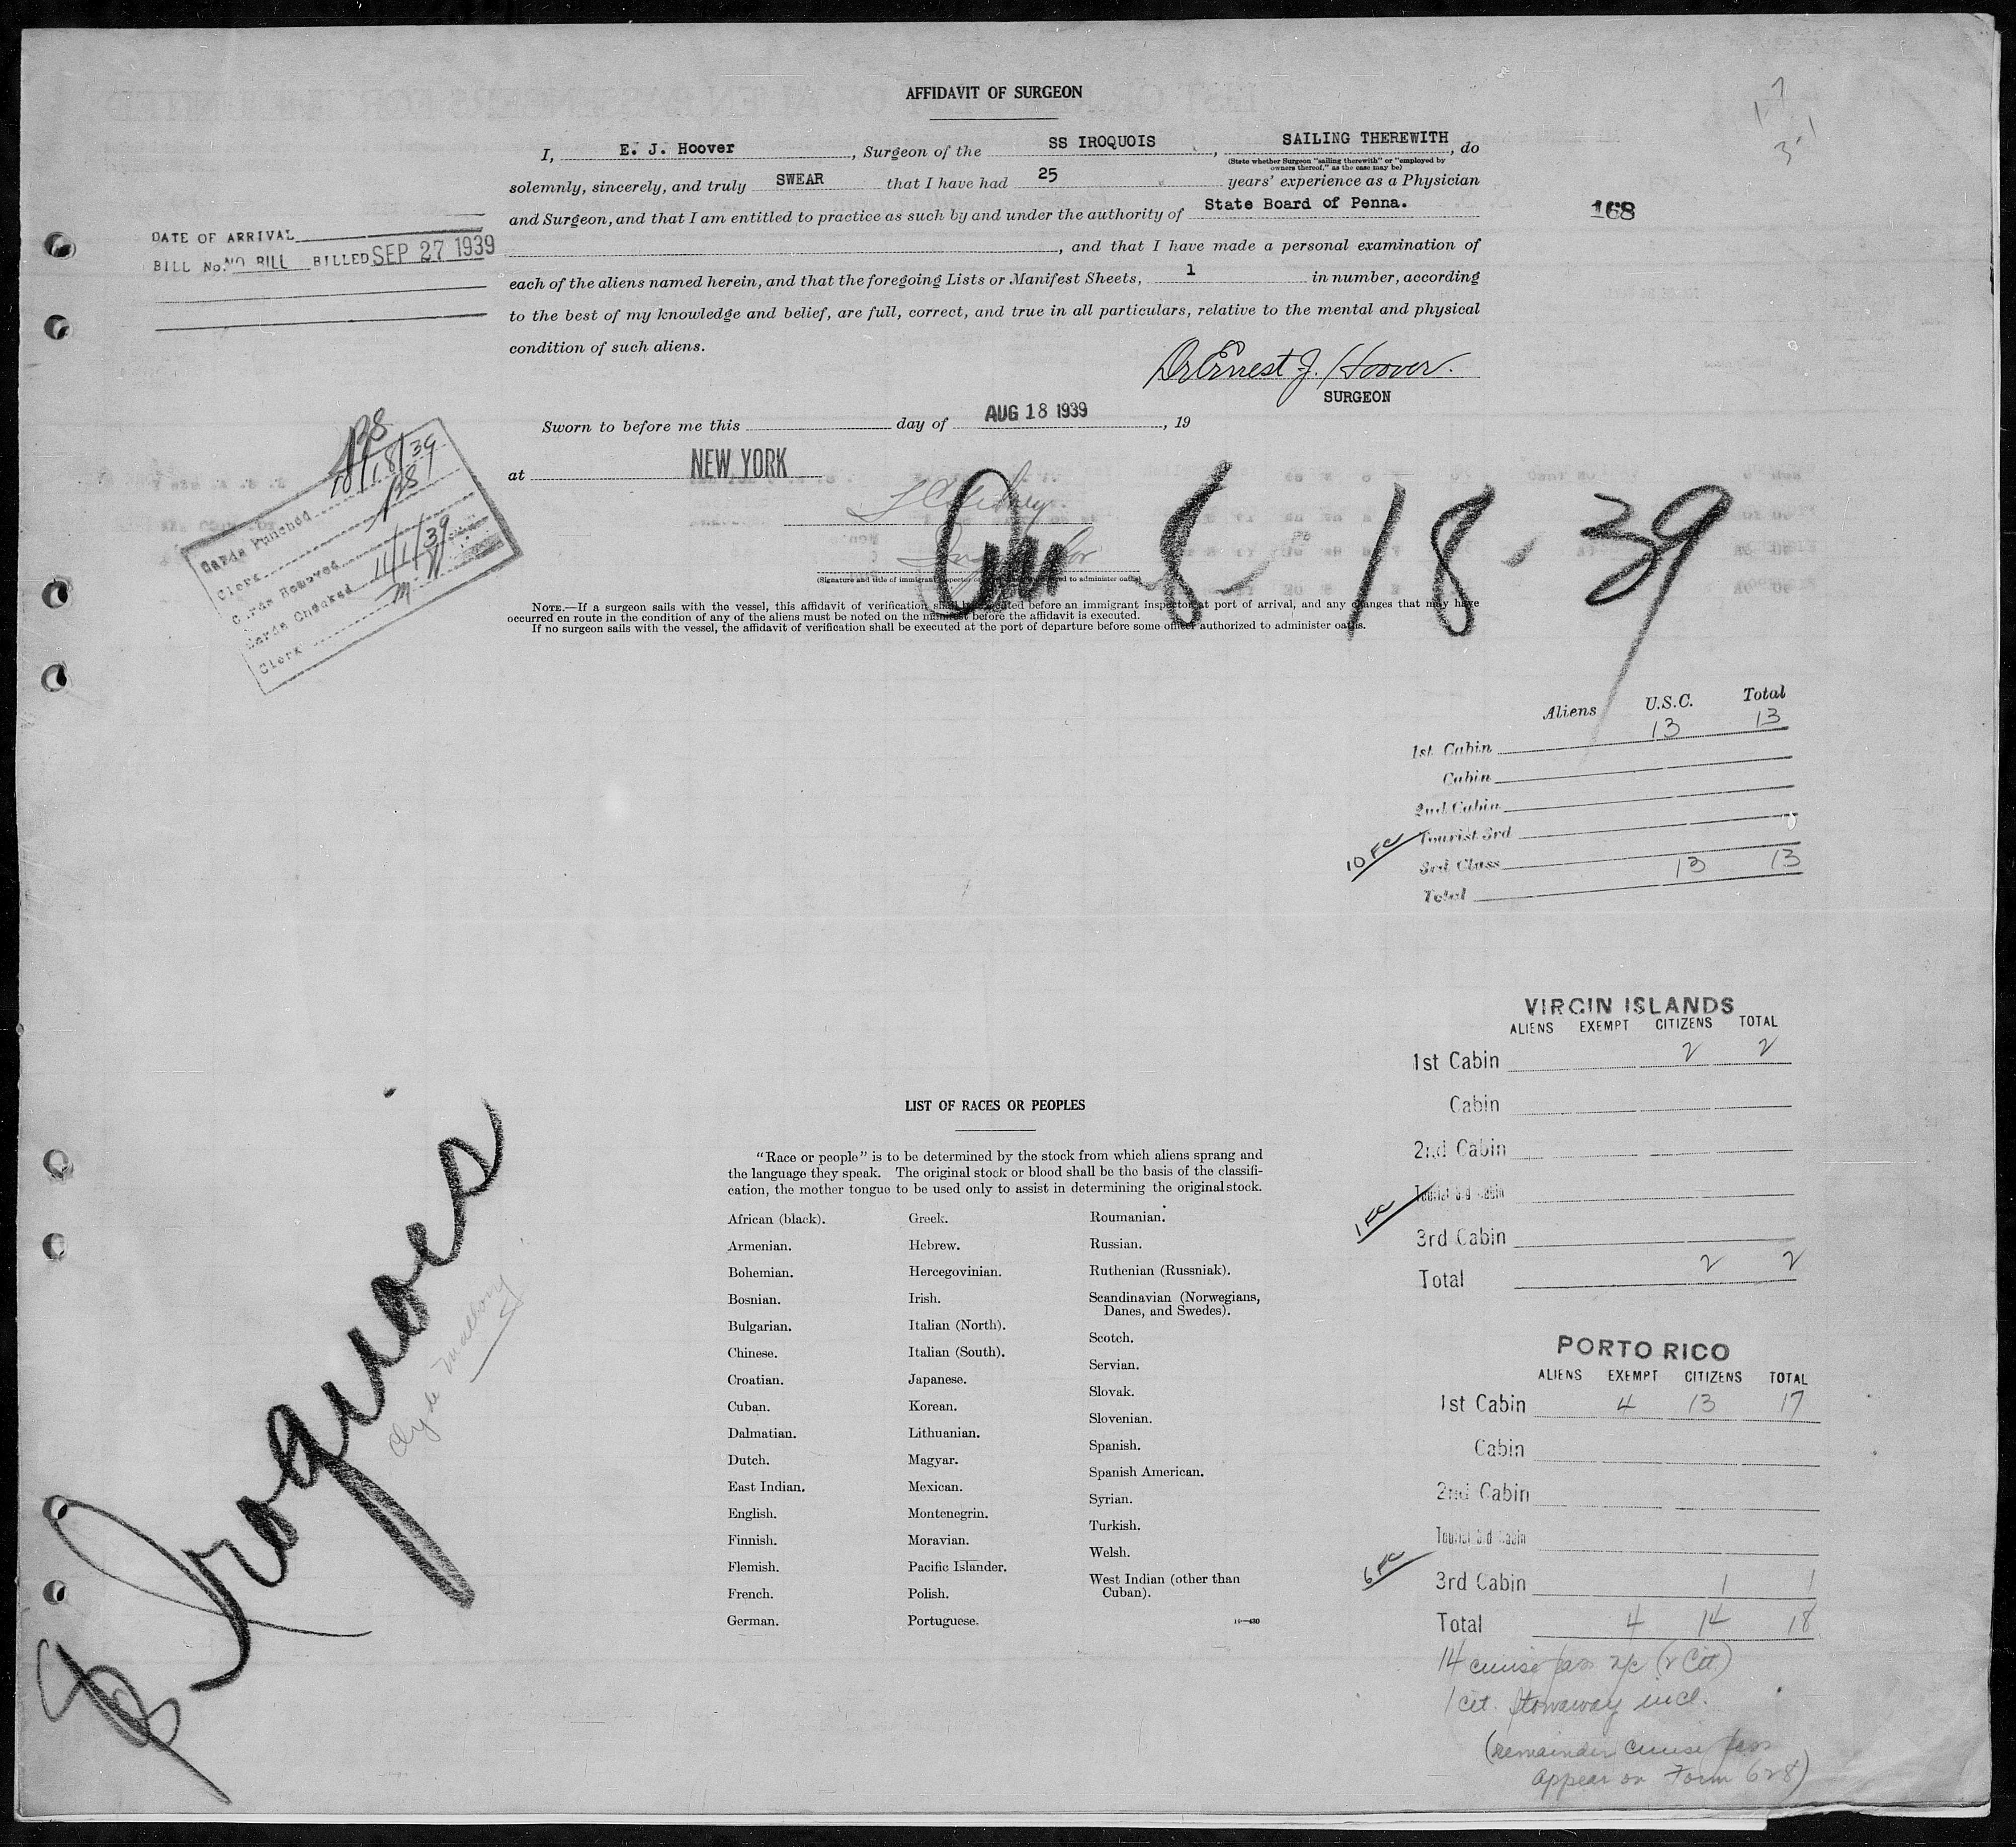 AFFIDAVIT OF SURGEON
I, E. J. Hoover, Surgeon of the SS IROQUOIS, SAILING THEREWITH, do
(State whether Surgeon "sailing therewith" or "employed by
owners thereof," as the case may be)
solemnly, sincerely, and truly SWEAR that I have had 25 years' experience as a Physician
and Surgeon, and that I am entitled to practice as such by and under the authority of State Board of Penna.
168
, and that I have made a personal examination of
DATE OF ARRIVAL
BILL No. NO BILL BILLED SEP 27 1939
each of the aliens named herein, and that the foregoing Lists or Manifest Sheets, 1 in number, according
to the best of my knowledge and belief, are full, correct, and true in all particulars, relative to the mental and physical
condition of such aliens.
Dr Ernest J. Hoover.
SURGEON
Sworn to before me this day of AUG 18 1939, 19
at NEW YORK
Cards Punched 10/18/39
Clerk
Cards Removed
Cards Checked 11/1/39
Clerk
8-18-39
(Signature and title of immigrant inspector to administer oaths)
NOTE.—If a surgeon sails with the vessel, this affidavit of verification shall be executed before an immigrant inspector at port of arrival, and any changes that may have
occurred en route in the condition of any of the aliens must be noted on the manifest before the affidavit is executed.
If no surgeon sails with the vessel, the affidavit of verification shall be executed at the port of departure before some officer authorized to administer oaths.
Aliens U.S.C. Total
1st Cabin 13 13
Cabin
2nd Cabin
Tourist 3rd
10 FC
3rd Class
Total 13 13
VIRGIN ISLANDS
ALIENS EXEMPT CITIZENS TOTAL
1st Cabin 2 2
Cabin
2nd Cabin
Tourist 3rd Cabin
1 FC
3rd Cabin
Total 2 2
PORTO RICO
ALIENS EXEMPT CITIZENS TOTAL
1st Cabin 4 13 17
Cabin
2nd Cabin
Tourist 3rd Cabin
6 FC
3rd Cabin 1 1
Total 4 14 18
14 cruise pass
1 cit. stowaway incl.
(remainder cruise pass
appear on Form 628)
LIST OF RACES OR PEOPLES
"Race or people" is to be determined by the stock from which aliens sprang and
the language they speak. The original stock or blood shall be the basis of the classifi-
cation, the mother tongue to be used only to assist in determining the original stock.
African (black).
Armenian.
Bohemian.
Bosnian.
Bulgarian.
Chinese.
Croatian.
Cuban.
Dalmatian.
Dutch.
East Indian.
English.
Finnish.
Flemish.
French.
German.
Greek.
Hebrew.
Hercegovinian.
Irish.
Italian (North).
Italian (South).
Japanese.
Korean.
Lithuanian.
Magyar.
Mexican.
Montenegrin.
Moravian.
Pacific Islander.
Polish.
Portuguese.
Roumanian.
Russian.
Ruthenian (Russniak).
Scandinavian (Norwegians,
Danes, and Swedes).
Scotch.
Servian.
Slovak.
Slovenian.
Spanish.
Spanish American.
Syrian.
Turkish.
Welsh.
West Indian (other than
Cuban).
14—430
Iroquois
Clyde Mallory